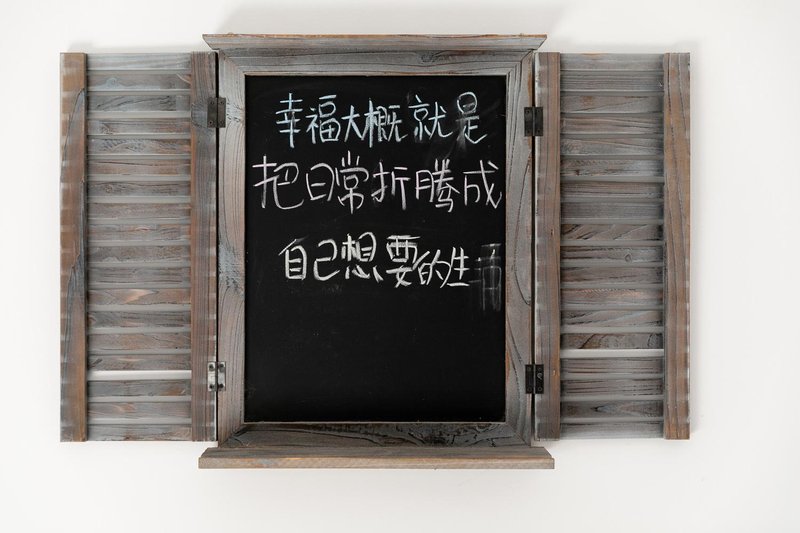 幸福大概就是
把日常折腾成
自己想要的生活